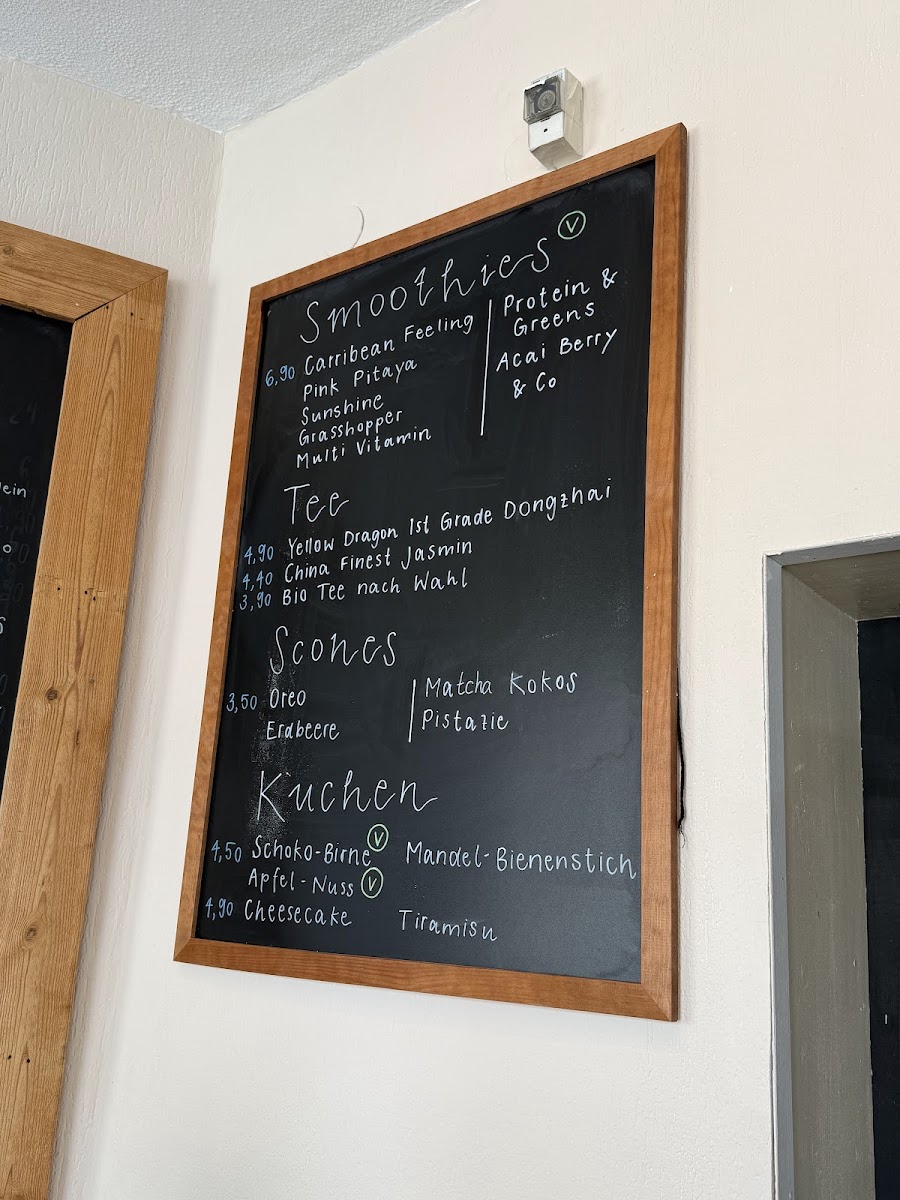 Smoothies V
6,90 Carribean Feeling
Pink Pitaya
Sunshine
Grasshopper
Multi Vitamin
Protein &
Greens
Acai Berry
& Co
Tee
4,90 Yellow Dragon 1st Grade Dongzhai
4,40 China Finest Jasmin
3,90 Bio Tee nach Wahl
Scones
3,50 Oreo
Erdbeere
Matcha Kokos
Pistazie
Kuchen
4,50 Schoko-Birne V Mandel-Bienenstich
Apfel-Nuss V
4,90 Cheesecake Tiramisu